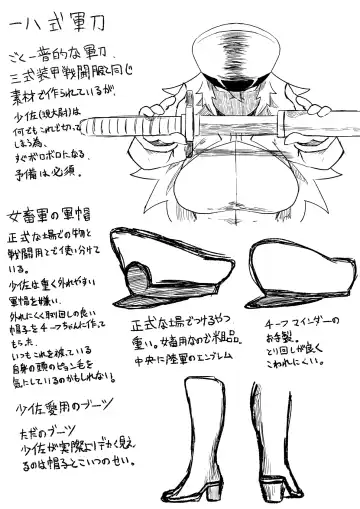 一八式軍刀
ごく一音的な軍刀、
三式装甲戦闘服と同じ
素材で作られているが、
少佐(現大尉)は
何でもこれで切って
しまう為、
すぐボロボロになる。
予備は必須。
女畜軍の軍帽
正式な場での物と
戦闘用とで使い分けて
いる。
少佐は重く外れやすい
軍帽を嫌い、
外れにくく取り回しの良い
帽子をチーフちゃんに作って
もらった。
いつもこれを被っている
自身の頭のピョン毛を
気にしているのかもしれない。
正式な場でつけるやつ
重い。女畜用なので粗品。
中央に陸軍のエンブレム
チーフマインダーの
お手製。
とり回しが良く
こわれにくい。
少佐愛用のブーツ
ただのブーツ
少佐が実際よりデカく見え
るのは帽子とこいつのせい。